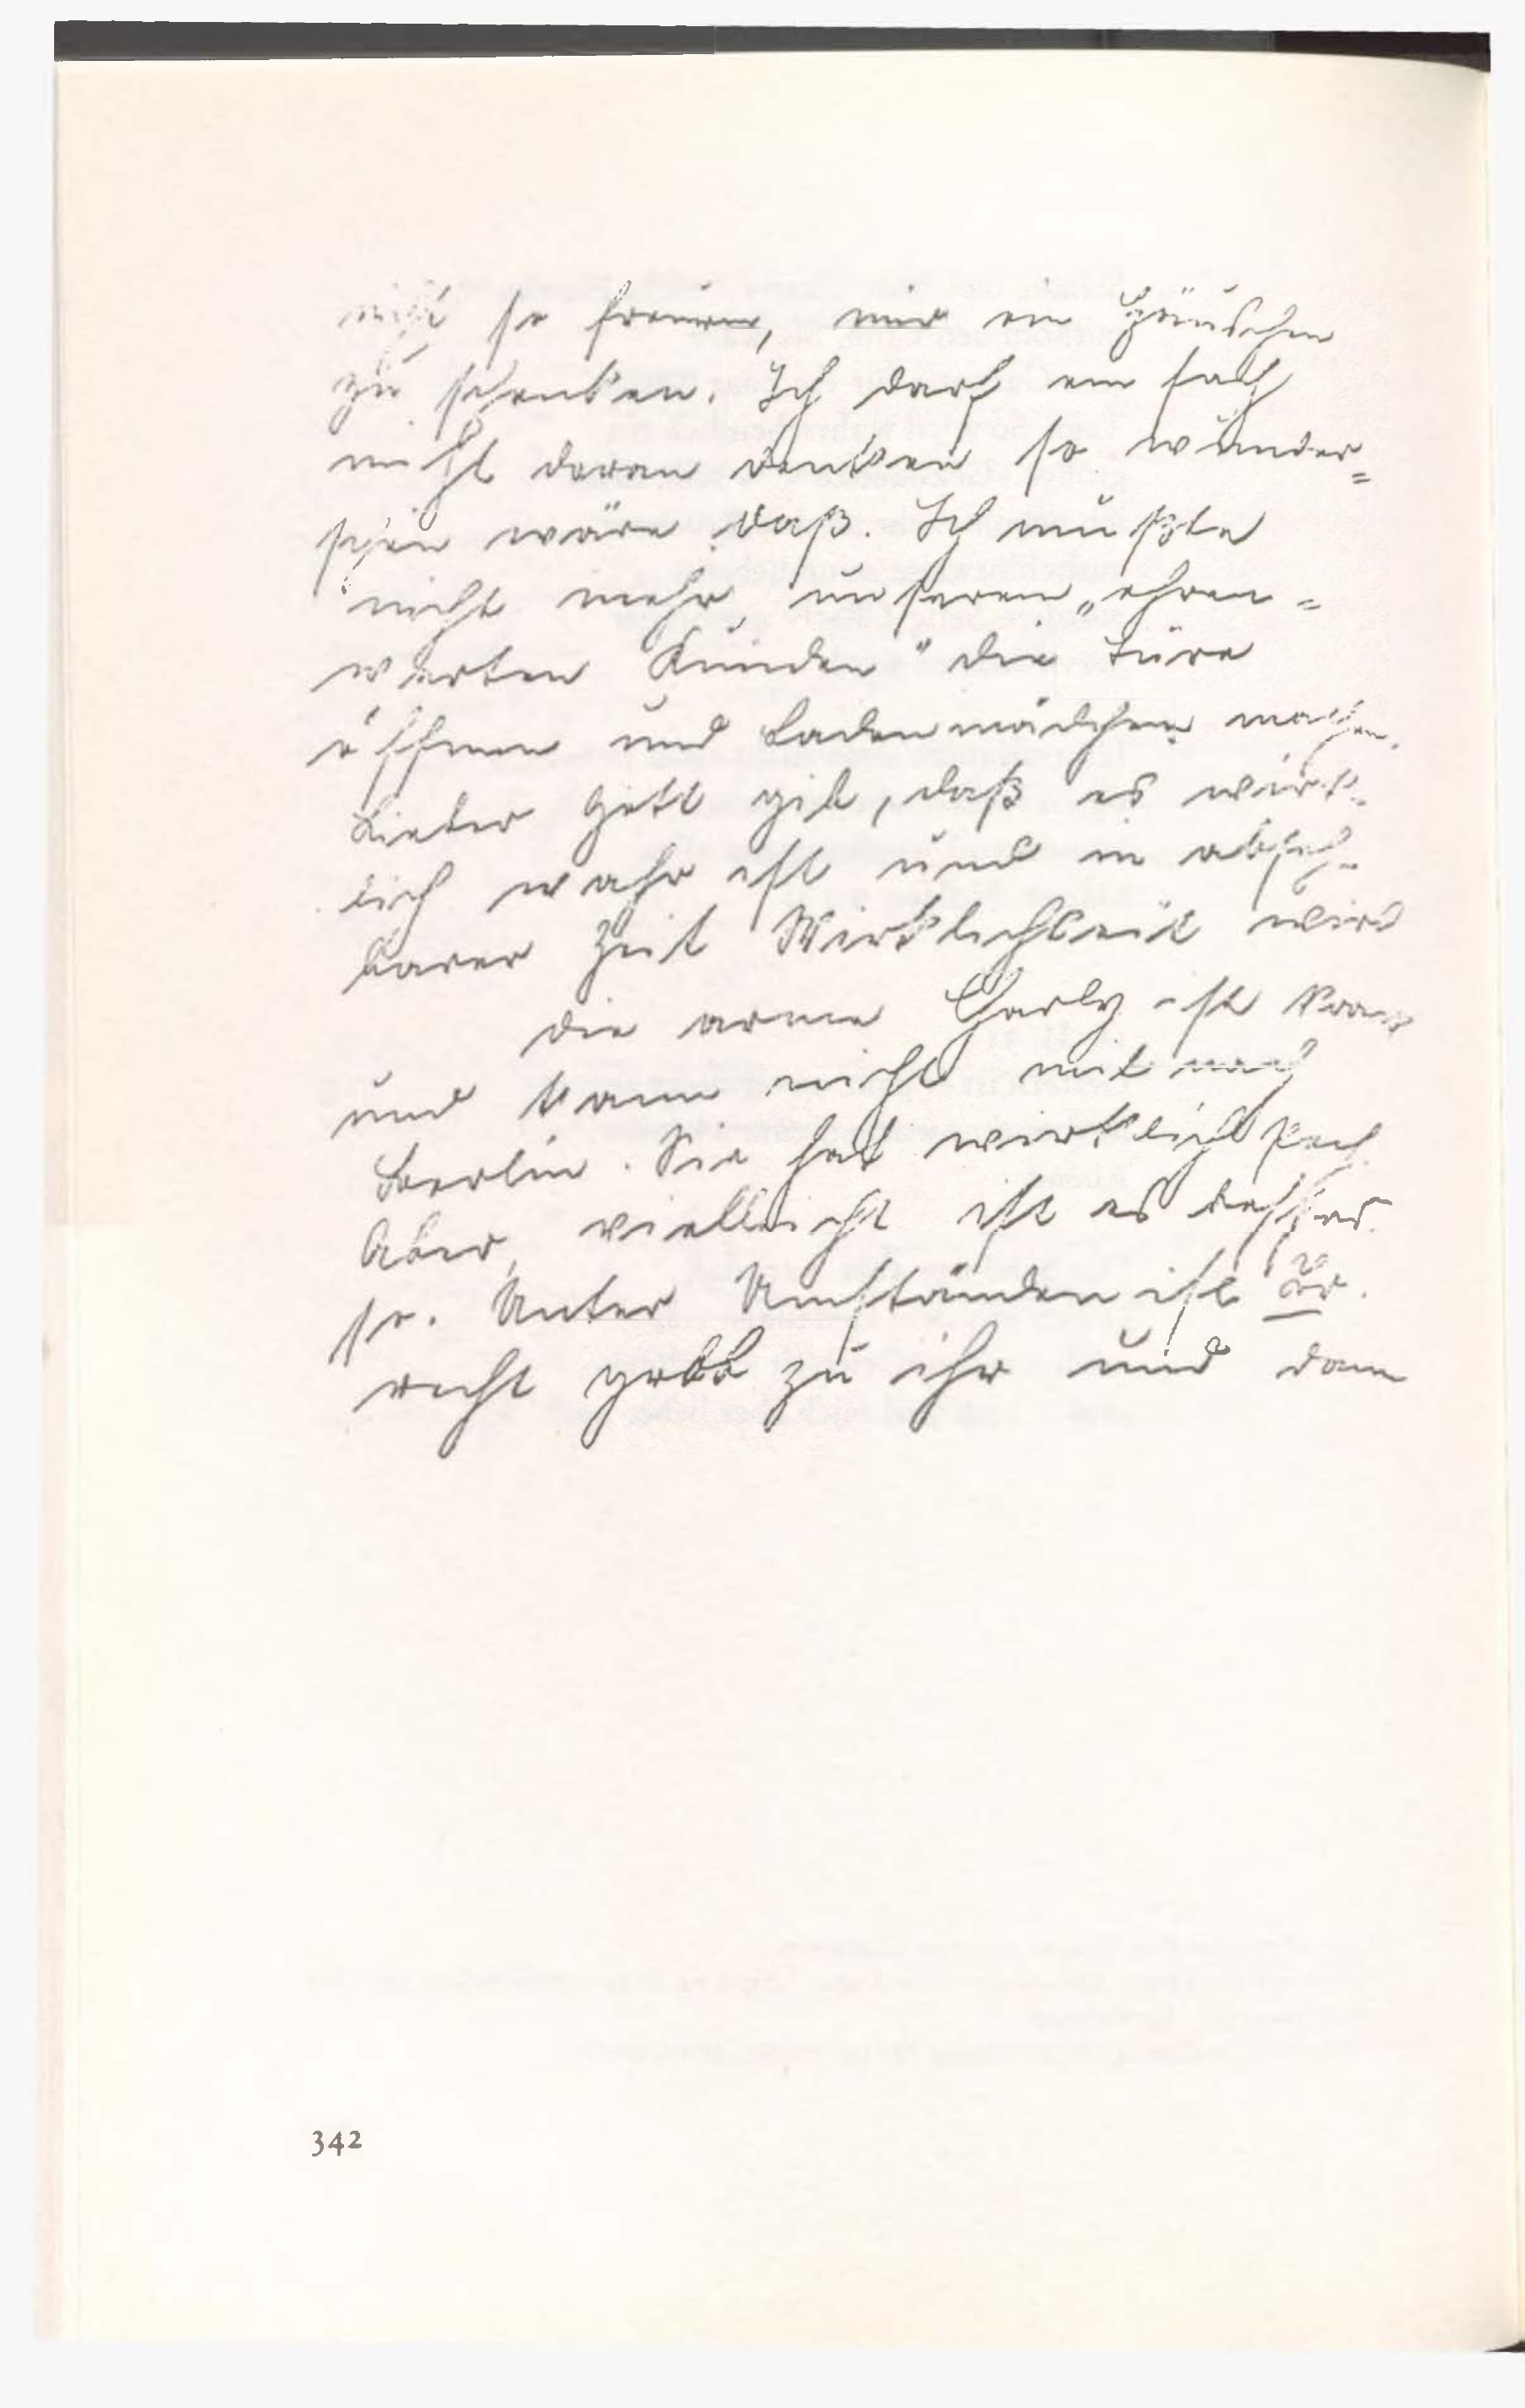 nicht so freuen, mir ein Häuschen
zu schenken. Ich darf einfach
nicht daran denken so wunder=
schön wäre daß. Ich müßte
nicht mehr unseren „ehren=
werten Kunden" die Türe
öffnen und Ladenmädchen machen.
Lieber Gott gib, daß es wirk-
lich wahr ist und in abseh-
barer Zeit Wirklichkeit wird
die arme Charly ist krank
und kann nicht mit nach
Berlin. Sie hat wirklich Pech.
Aber, vielleicht ist es besser
so. Unter Umständen ist Er.
recht grob zu ihr und dann
342